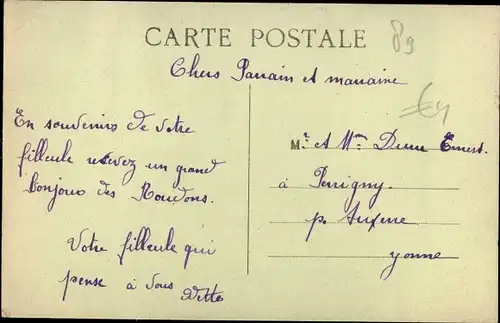 CARTE POSTALE
89
Chers Parrain et marraine
En souvenirs de votre
filleule recevez un grand
bonjour des Roudons.
Votre filleule qui
pense à vous
Mr. et Mme Ernest.
à Perrigny.
p. Auxerre
yonne